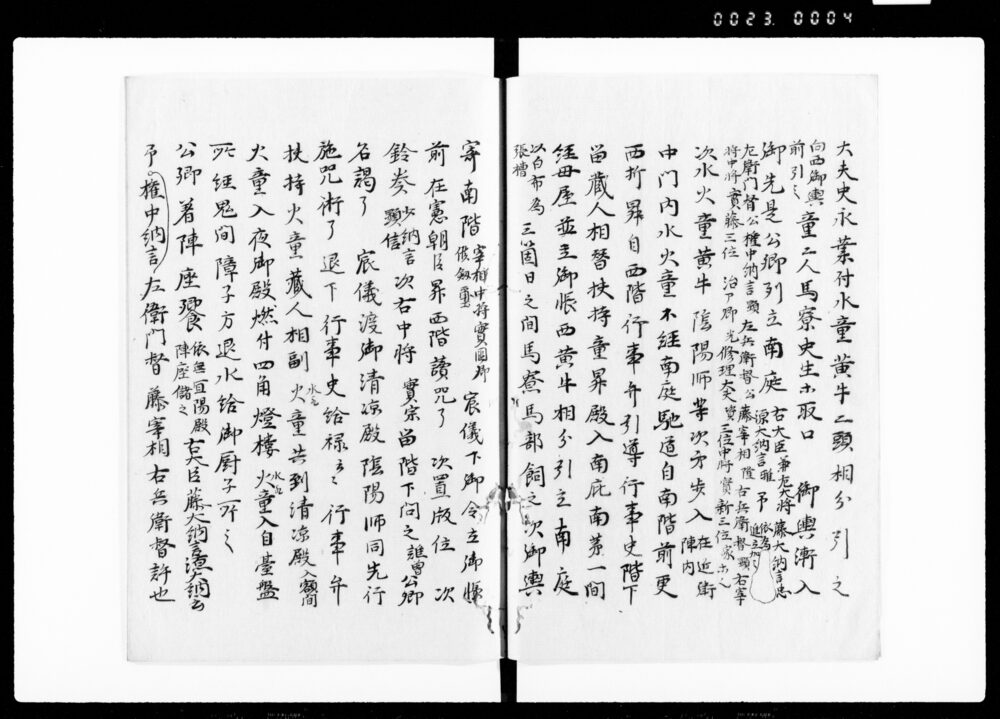 0023. 0004
大夫史永業付水童黄牛二頭相分引之
向西御輿
前引々
童二人馬寮史生ホ取口 御輿漸入
御先是公卿列立南庭 右大臣兼左大将 藤大納言忠
源大納言雅 予 依為
左衛門督公 権中納言顕 左兵衛督公 藤宰相隆 右兵衛督顕 右宰
将中将實 藤三位 治ア卿光 修理大夫實 三位中将實 新三位家ホ也
次水火童黄牛 陰陽師䒭次才歩入 在近衛
陣内
中門内水火童不経南庭馳道自南階前更
西折昇自西階行事弁引導行事史階下
留蔵人相替扶持童昇殿入南庇南第一間
経母屋並立御帳西黄牛相分引立南庭
以白布為
張槽
三箇日之間馬寮馬部飼之次御輿
寄南階 宰相中将實國卿
候釼璽
宸儀下御令立御帳
前在憲朝臣昇西階讀咒了 次置版位 次
鈴奏 少納言
顕信
次右中将實宗留階下問之誰曽公卿
名謁了 宸儀渡御清凉殿陰陽師同先行
施咒術了退下行事史給禄云々 行事弁
扶持火童蔵人相副 火水童共到清凉殿入額間
火童入夜御殿燃付四角燈樓 火水童入自臺盤
所経鬼間障子方退水給御厨子所云々
公卿著陣座饗 依無宜陽殿
陣座儲之
右大臣藤大納言源大納言
予権中納言左衛門督藤宰相右兵衛督許也